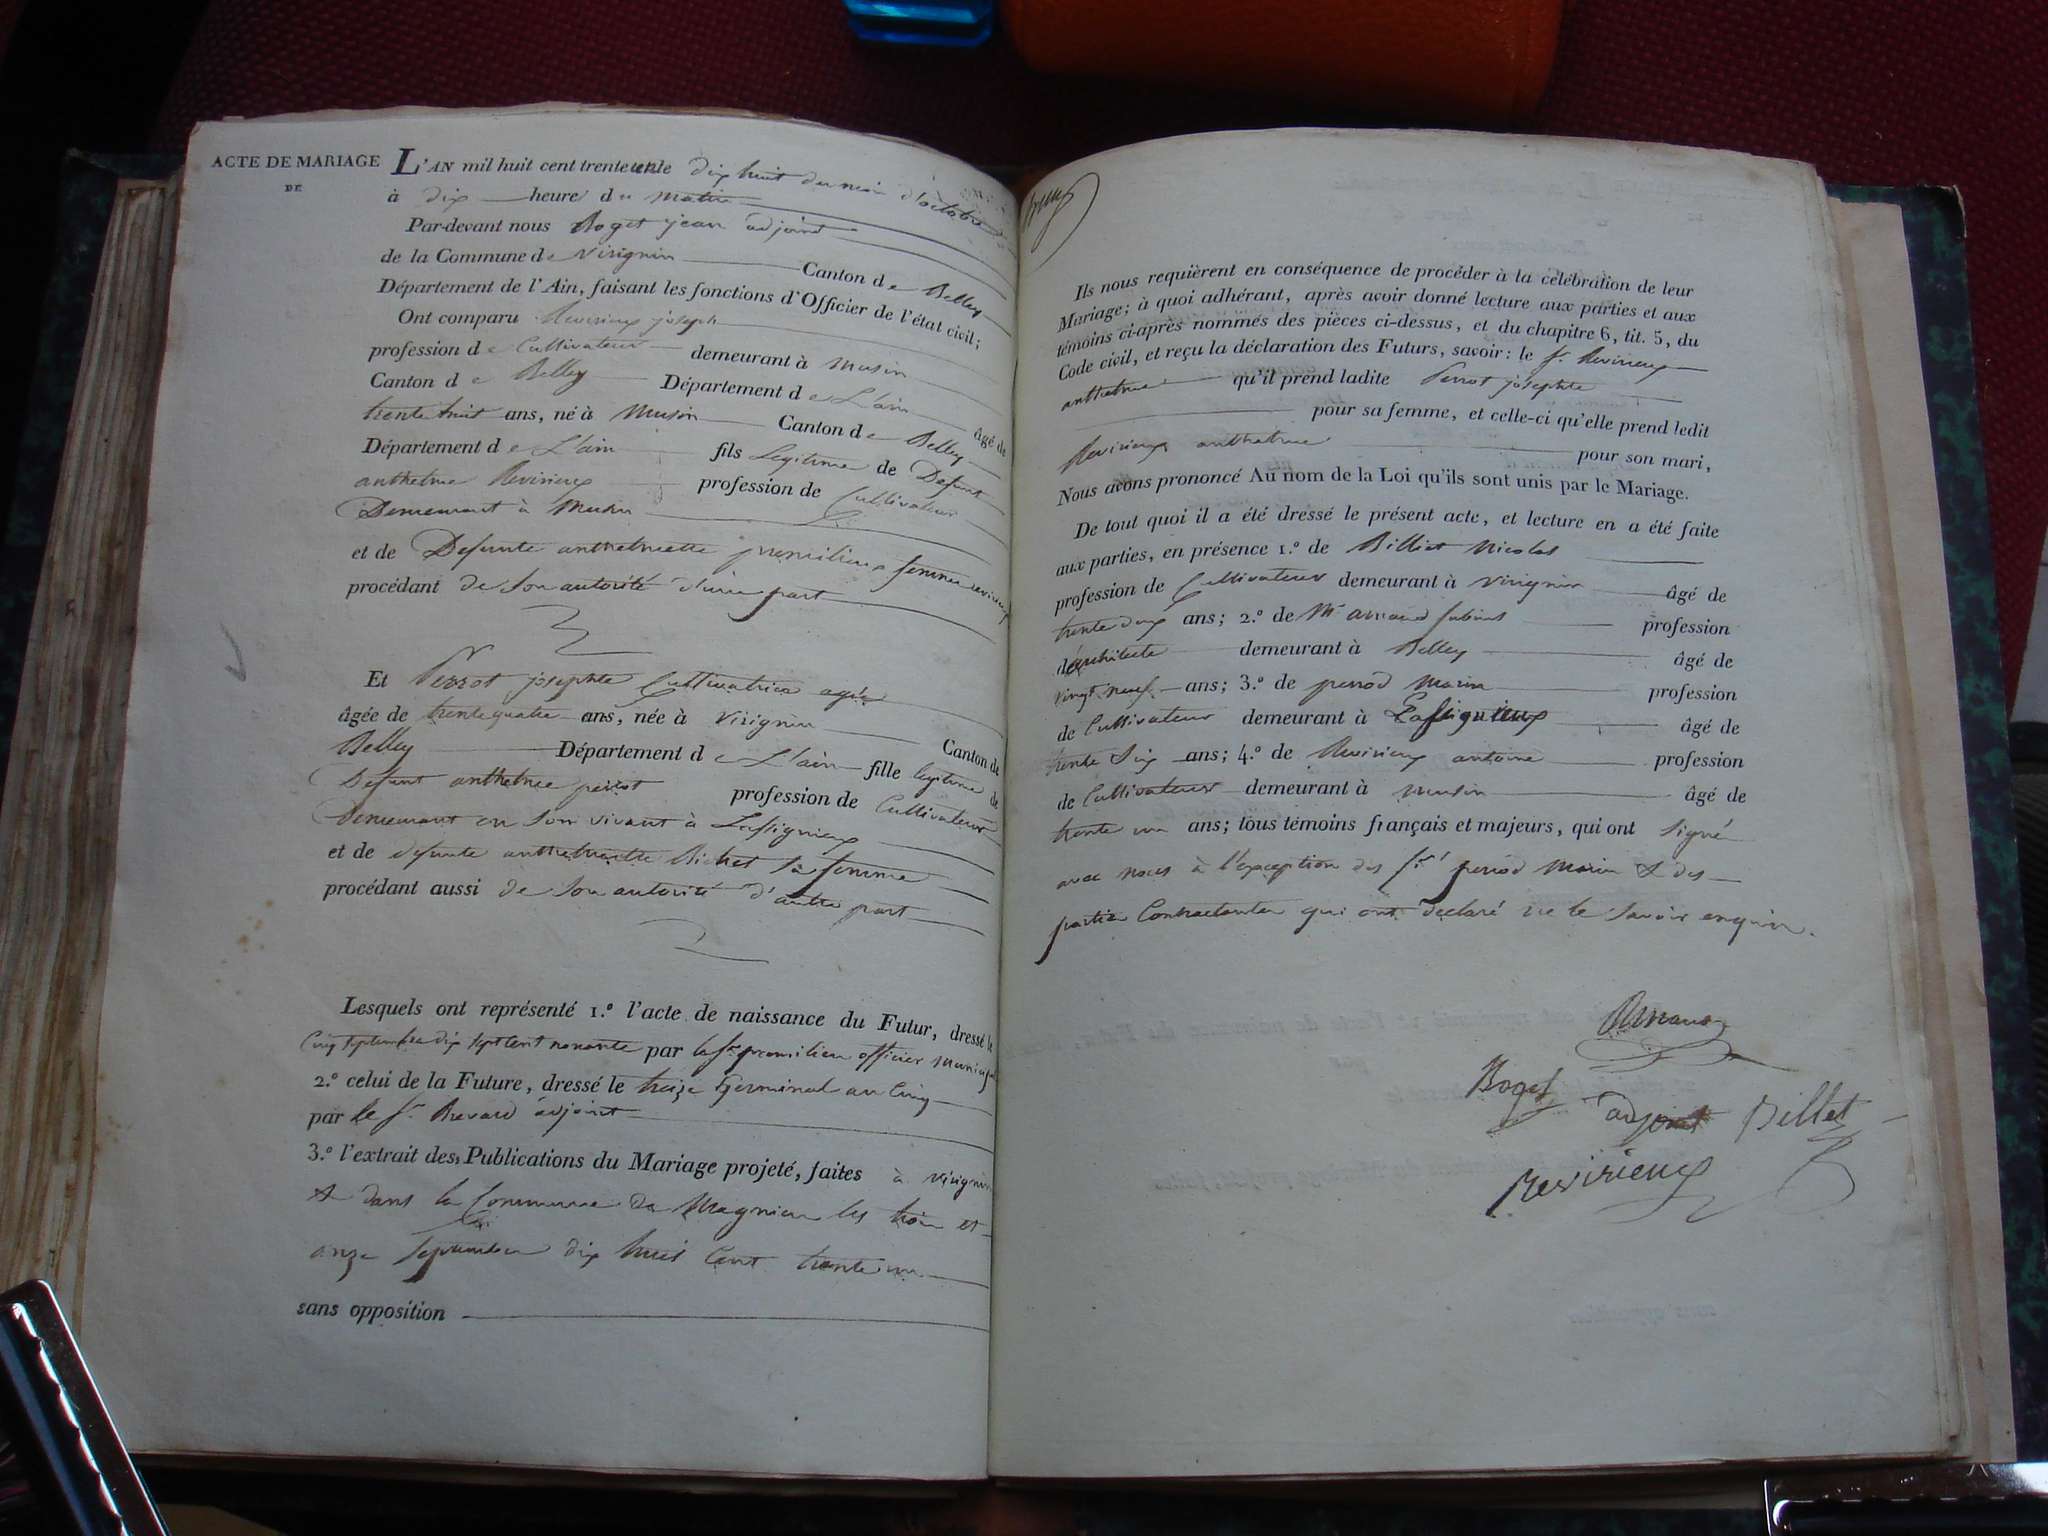 ACTE DE MARIAGE
DE
L'AN mil huit cent trente un le dix huit du mois d'octobre
à dix heure du matin
Par-devant nous Roget jean adjoint
de la Commune de virignin Canton de Belley
Département de l'Ain, faisant les fonctions d'Officier de l'état civil;
Ont comparu Revirieux joseph
profession de Cultivateur demeurant à Musin
Canton de Belley Département de L'ain âgé de
trente huit ans, né à Musin Canton de Belley
Département de L'ain fils Legitime de Defunt
anthelme Revirieux profession de Cultivateur
Demeurant à Musin
et de Defunte anthelmette premilieux femme revirieux
procédant de son autorité d'une part
Et Perrot josephte Cultivatrice agée
âgée de trente quatre ans, née à virignin Canton de
Belley Département de L'ain fille legitime de
Defunt anthelme perrot profession de Cultivateur
Demeurant en son vivant à Lassignieux
et de defunte anthelmette Richet sa femme
procédant aussi de son autorité d'autre part
Lesquels ont représenté 1.º l'acte de naissance du Futur, dressé le
Cinq septembre dix sept cent nonante par le sr. premilieu officier municipal
2.º celui de la Future, dressé le treize Germinal an Cinq
par le sr. Brevard adjoint
3.º l'extrait des Publications du Mariage projeté, faites à virignin
& dans la Commune de Magnieu les trois et
onze septembre dix huit cent trente un
sans opposition
Ils nous requièrent en conséquence de procéder à la célébration de leur
Mariage; à quoi adhérant, après avoir donné lecture aux parties et aux
témoins ci-après nommés des pièces ci-dessus, et du chapitre 6, tit. 5, du
Code civil, et reçu la déclaration des Futurs, savoir: le sr. Revirieux
anthelme qu'il prend ladite Perrot josephte
pour sa femme, et celle-ci qu'elle prend ledit
Revirieux anthelme pour son mari,
Nous avons prononcé Au nom de la Loi qu'ils sont unis par le Mariage.
De tout quoi il a été dressé le présent acte, et lecture en a été faite
aux parties, en présence 1.º de Billiet Nicolas
profession de Cultivateur demeurant à virignin âgé de
trente deux ans; 2.º de Mr. arnaud profession
d'architecte demeurant à Belley âgé de
vingt neuf ans; 3.º de perrod Marin profession
de Cultivateur demeurant à Lassignieux âgé de
trente Six ans; 4.º de Revirieux antoine profession
de Cultivateur demeurant à musin âgé de
trente un ans; tous témoins français et majeurs, qui ont signé
avec nous à l'exception des srs perrod Marin & des
parties Contractantes qui ont declaré ne le savoir enquis.
Arnaud
Roget adjoint Billet
Revirieux